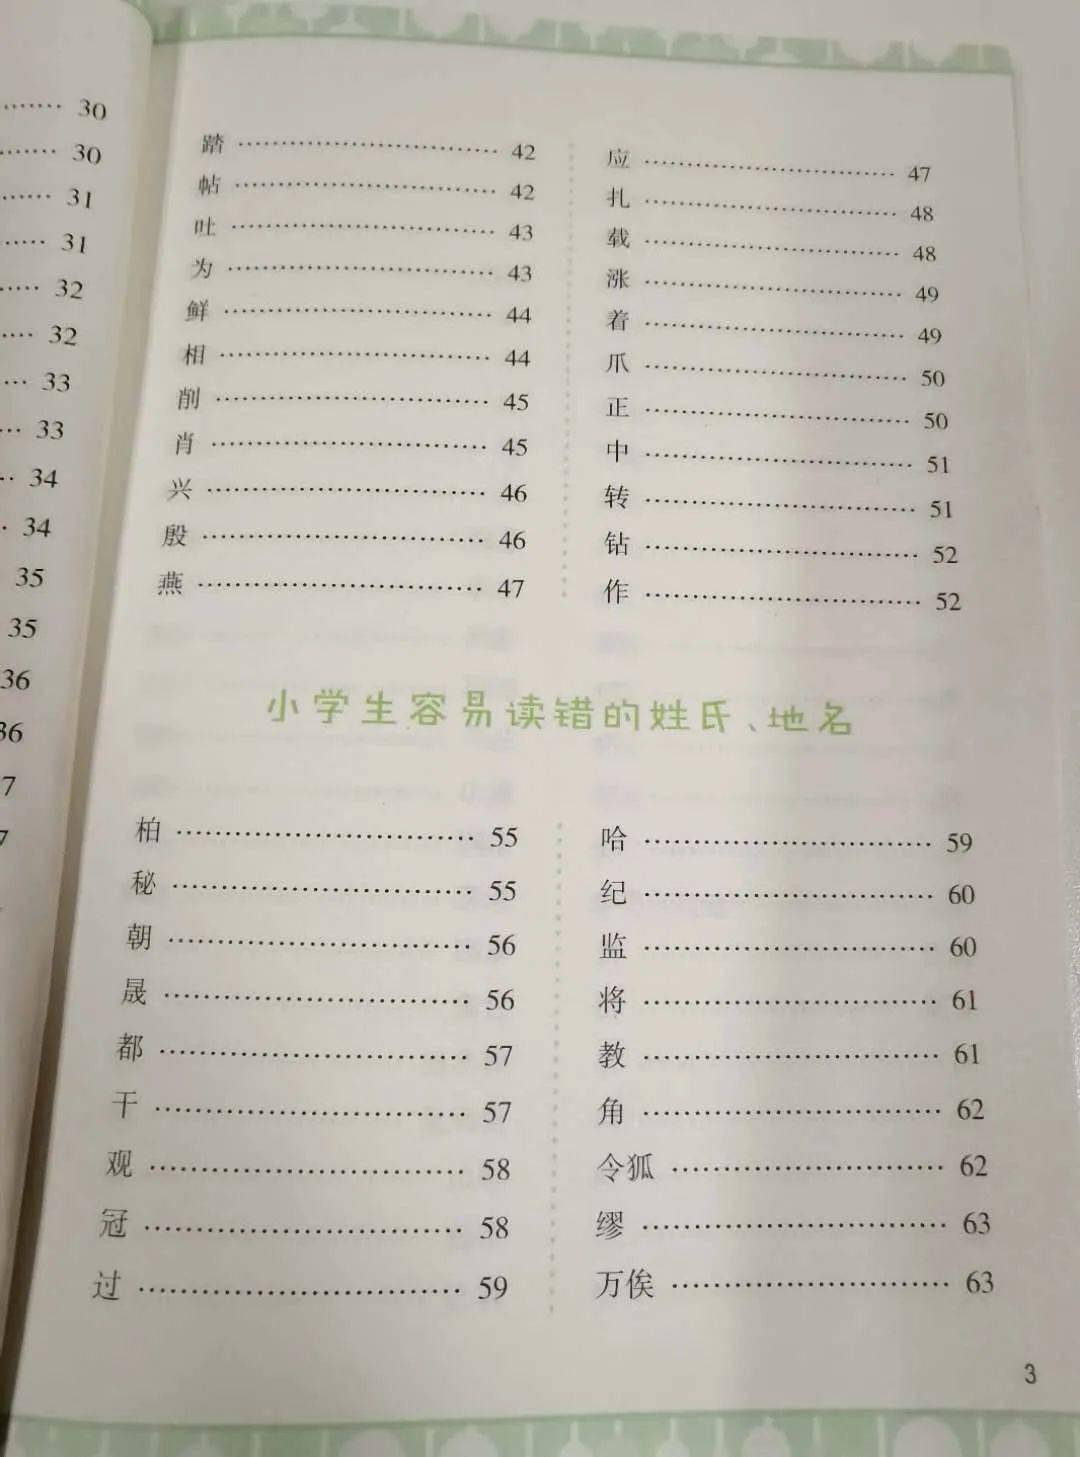 30
30
31
31
32
32
33
33
34
34
35
35
36
36
7
7
踏 ………………………… 42
帖 ………………………… 42
吐 ………………………… 43
为 ………………………… 43
鲜 ………………………… 44
相 ………………………… 44
削 ………………………… 45
肖 ………………………… 45
兴 ………………………… 46
殷 ………………………… 46
燕 ………………………… 47
应 ………………………… 47
扎 ………………………… 48
载 ………………………… 48
涨 ………………………… 49
着 ………………………… 49
爪 ………………………… 50
正 ………………………… 50
中 ………………………… 51
转 ………………………… 51
钻 ………………………… 52
作 ………………………… 52
小学生容易读错的姓氏、地名
柏 ………………………… 55
秘 ………………………… 55
朝 ………………………… 56
晟 ………………………… 56
都 ………………………… 57
干 ………………………… 57
观 ………………………… 58
冠 ………………………… 58
过 ………………………… 59
哈 ………………………… 59
纪 ………………………… 60
监 ………………………… 60
将 ………………………… 61
教 ………………………… 61
角 ………………………… 62
令狐 ……………………… 62
缪 ………………………… 63
万俟 ……………………… 63
3